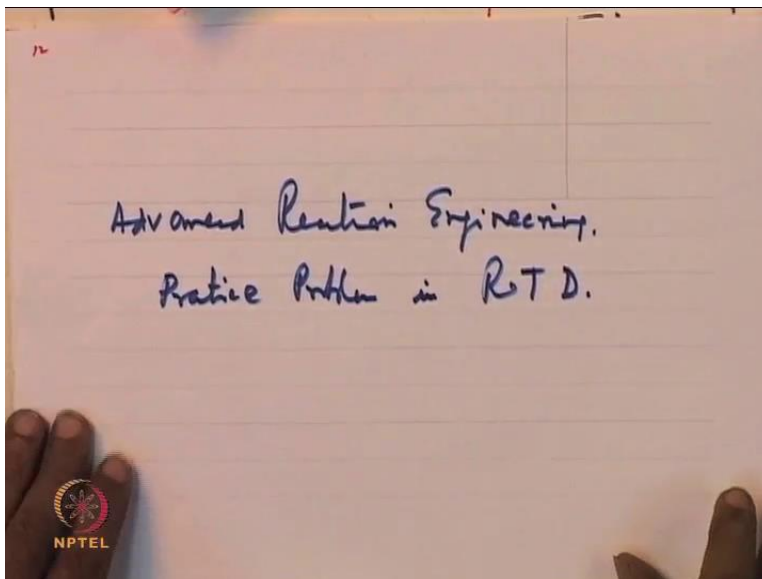 12
Advanced Reaction Engineering.
Pratice Problem in RTD.
NPTEL